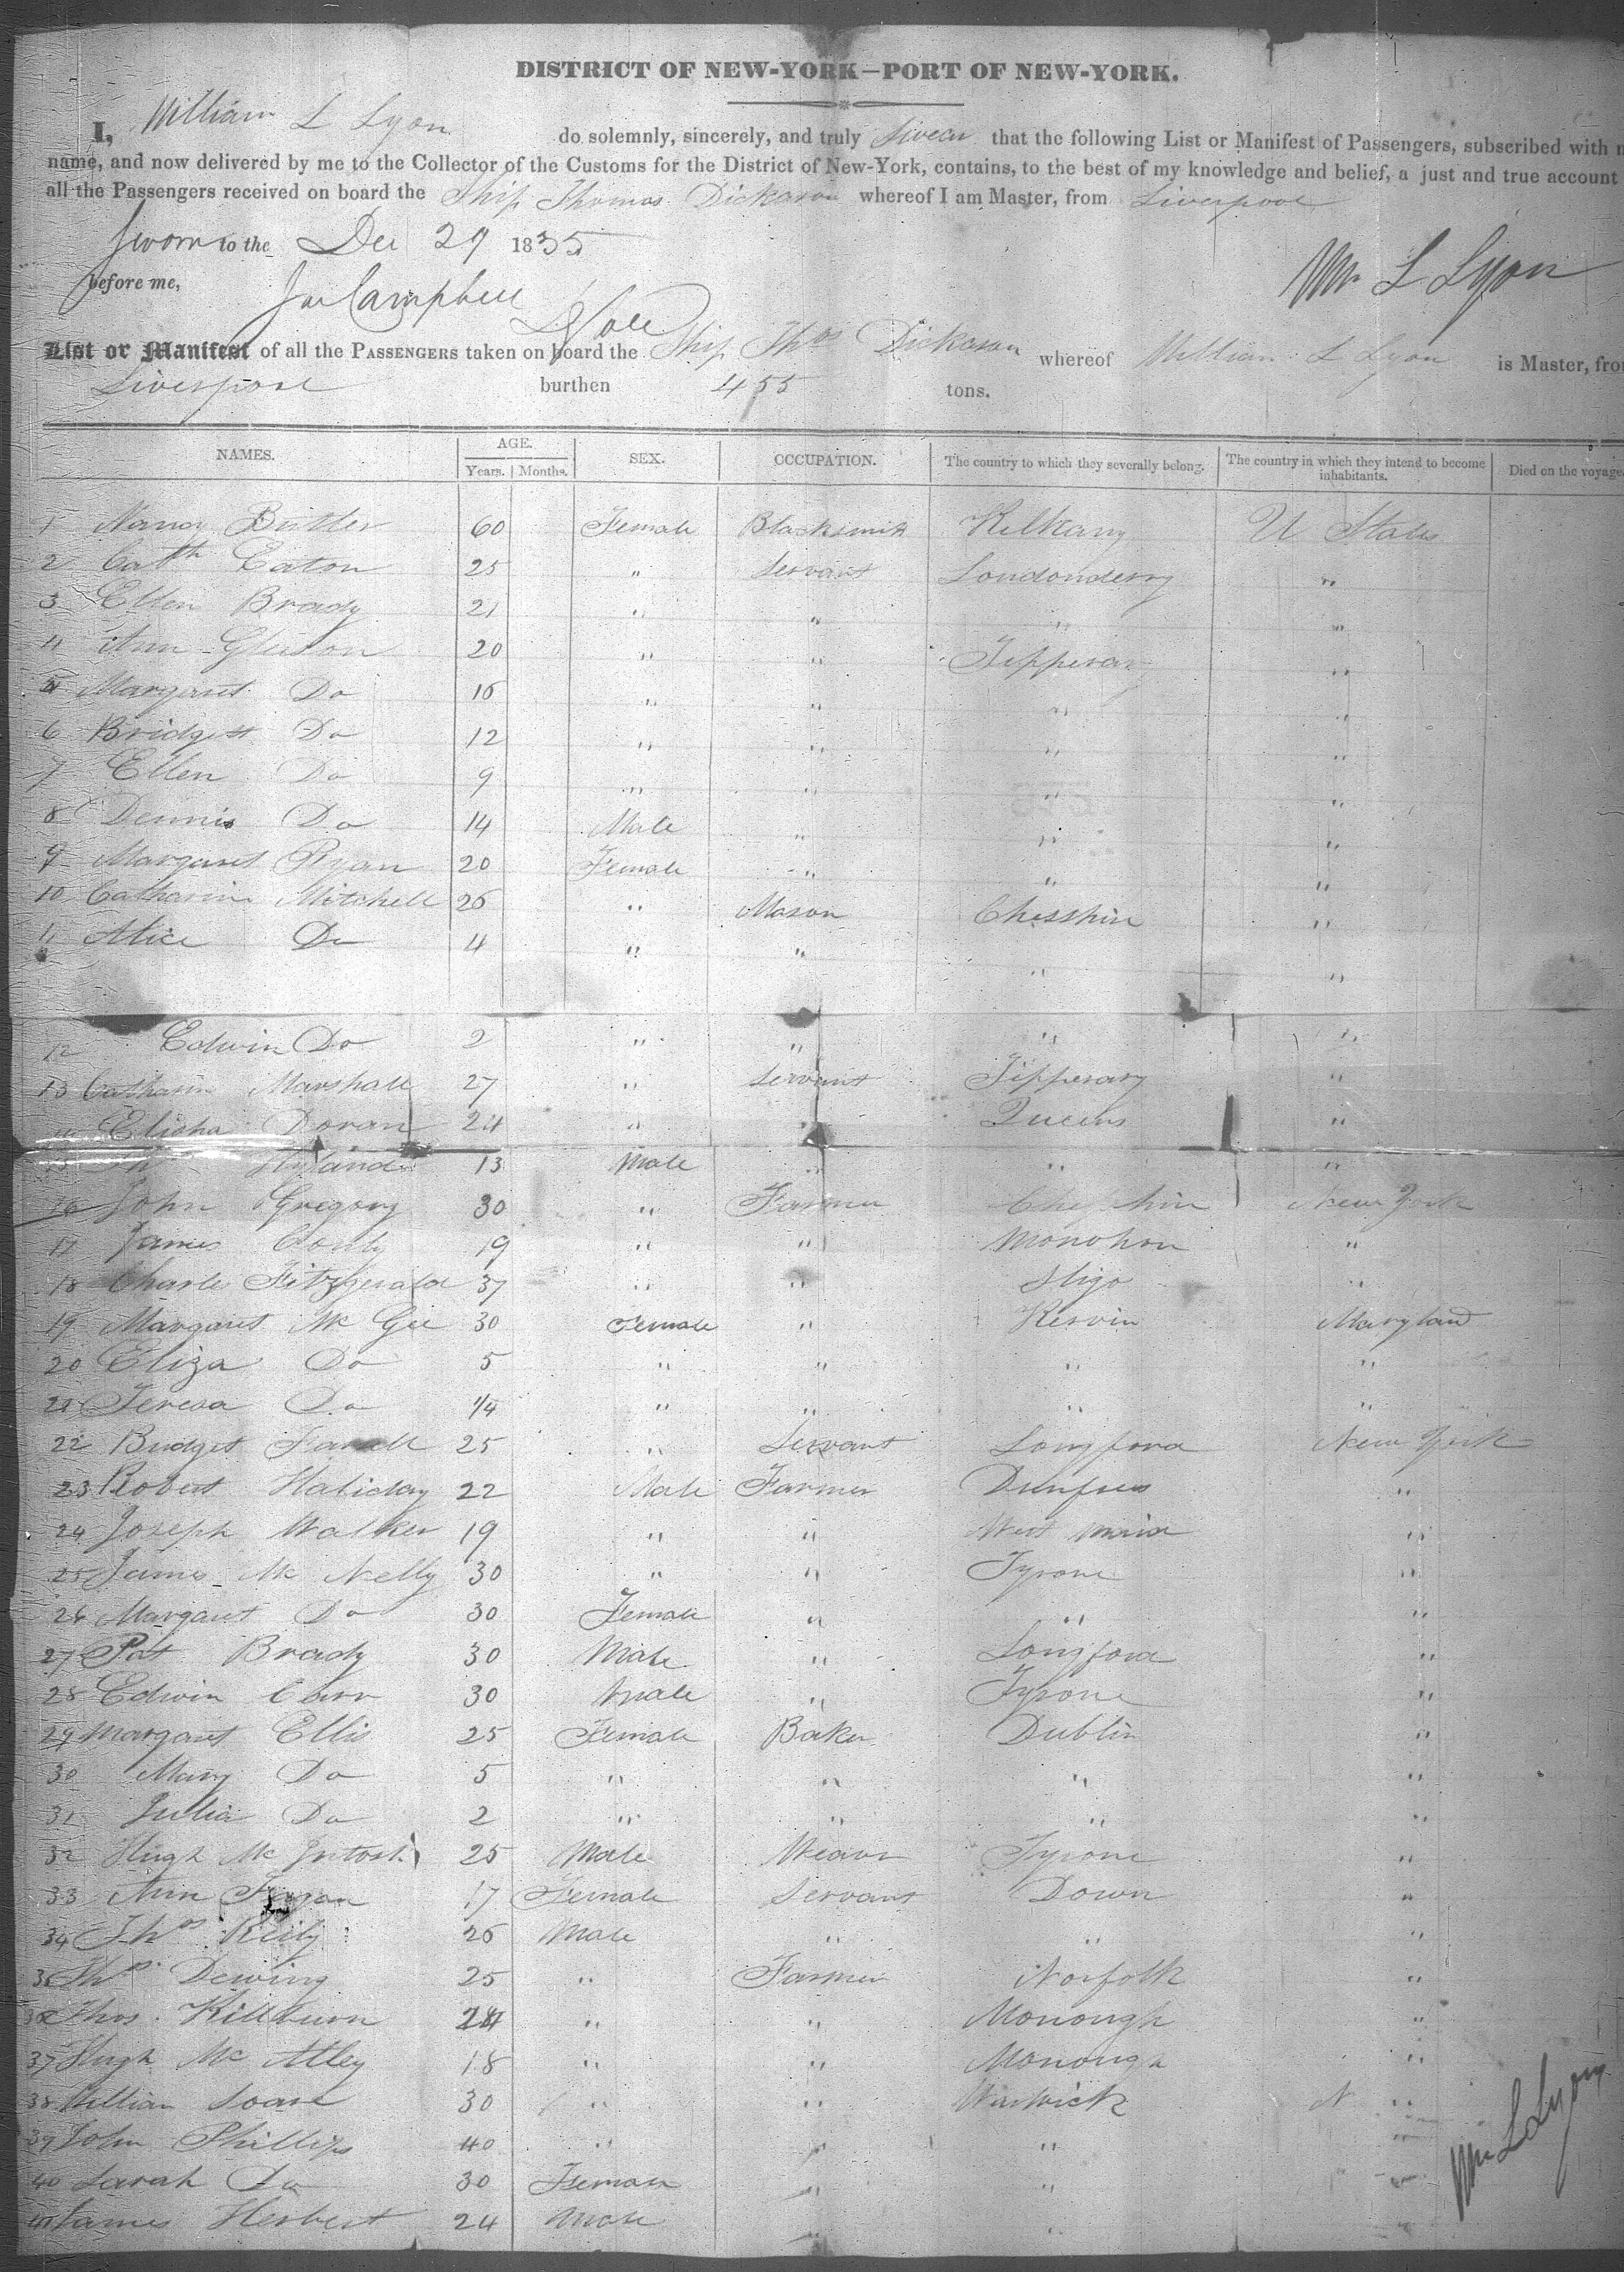 DISTRICT OF NEW-YORK—PORT OF NEW-YORK.
I, William L Lyon do solemnly, sincerely, and truly swear that the following List or Manifest of Passengers, subscribed with
name, and now delivered by me to the Collector of the Customs for the District of New-York, contains, to the best of my knowledge and belief, a just and true account
all the Passengers received on board the Ship Thomas Dickason whereof I am Master, from Liverpool
Sworn to the Dec 29 1835
before me, Wm L Lyon
Campbell
List or Manifest of all the PASSENGERS taken on board the Ship Thos Dickason whereof William L Lyon is Master, from
Liverpool burthen 455 tons.
NAMES. AGE. Years. Months. SEX. OCCUPATION. The country to which they severally belong. The country in which they intend to become inhabitants. Died on the voyage
1 Nancy Butler 60 Female Blacksmith Kilkany U States
2 Cath Eaton 25 " Servant Londonderry "
3 Ellen Brady 21 " " " "
4 Ann Gleeson 20 " " Tipperary "
5 Margaret Do 16 " " " "
6 Bridgett Do 12 " " " "
7 Ellen Do 9 " " " "
8 Dennis Do 14 Male " " "
9 Margaret Ryan 20 Female " " "
10 Catharine Mitchell 26 " Mason Chesshire "
11 Alice Do 4 " " " "
12 Edwin Do 2 " " " "
13 Catharin Marshall 27 " Servant Tipperary "
14 Elisha Doran 24 " " Queens "
15 Hyland 13 Male " " "
16 John Gregory 30 " Farmer New York
17 James 19 " " Monohon "
18 Charles Fitzgerald 37 " " Sligo "
19 Margaret Mc Gee 30 Female " Maryland
20 Eliza Do 5 " " " "
21 Teresa Do 1/4 " " " "
22 Bridget Farrell 25 " Servant Longford New York
23 Robert Haliday 22 Male Farmer Dumfries "
24 Joseph Walker 19 " " West "
25 James Mc Nelly 30 " " Tyrone "
26 Margaret Do 30 Female " " "
27 Pat Brady 30 Male " Longford "
28 Edwin Carr 30 Male " Tyrone "
29 Margaret Ellis 25 Female Baker Dublin "
30 Mary Do 5 " " " "
31 Julia Do 2 " " " "
32 Hugh Mc Intosh 25 Male Weaver Tyrone "
33 Ann 17 Female Servant Down "
34 Thos Reily 26 Male " " "
35 Thos Dewing 25 " Farmer Norfolk "
36 Thos. Killburn 24 " " Monough "
37 Hugh Mc Alley 18 " " Monough "
38 William Soare 30 " " Warwick N "
39 John Phillips 40 " " " "
40 Sarah Do 30 Female " " "
41 James Herbert 24 Male " "
Wm L Lyon